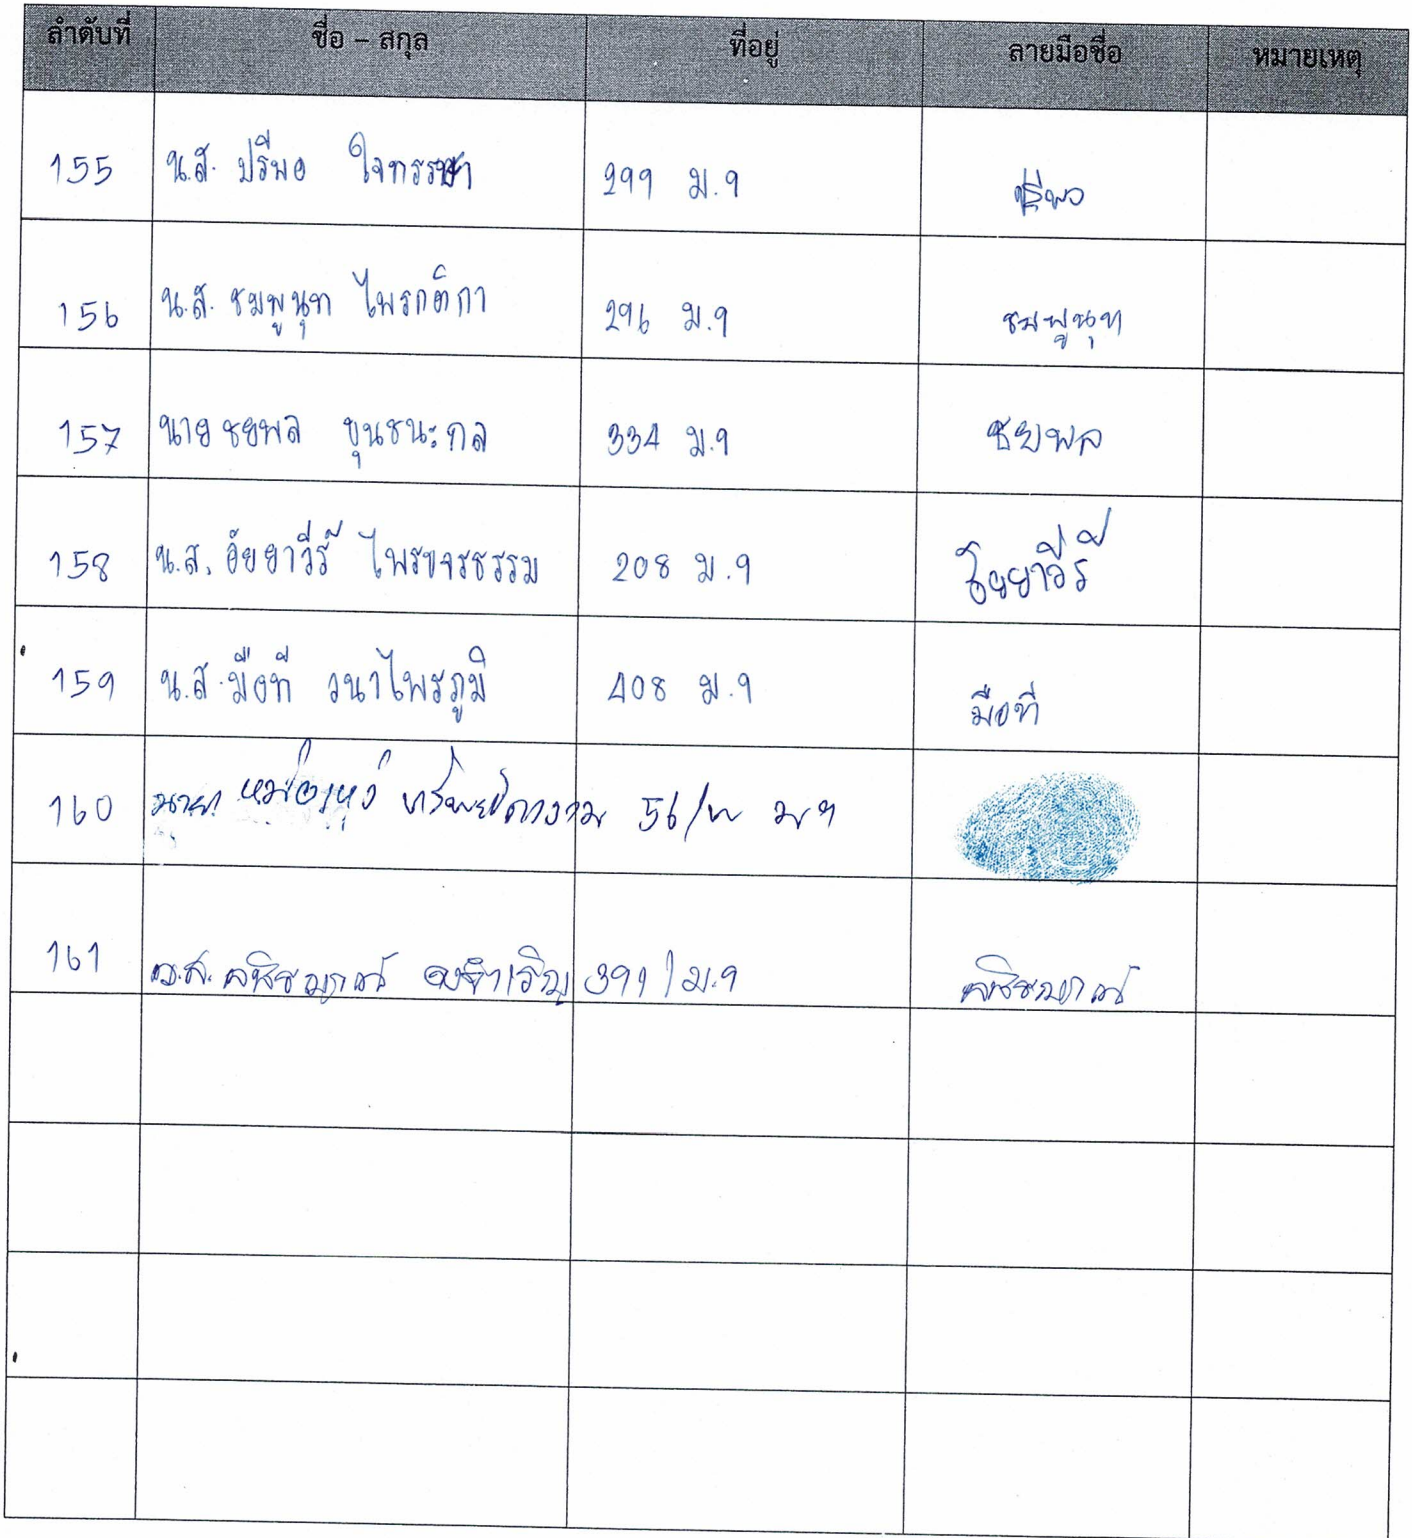 ลำดับที่ ชื่อ – สกุล ที่อยู่ ลายมือชื่อ หมายเหตุ
155 น.ส. ปรีพอ ใจทรรษา 299 ม.9 ปรีพอ
156 น.ส. ชมพูนุท ไพรกติกา 296 ม.9 ชมพูนุท
157 นาย ชยพล ขุนชนะกล 334 ม.9 ชยพล
158 น.ส. อัยยาวีร์ ไพรขจรธรรม 208 ม.9 อัยยาวีร์
159 น.ส. มือที วนาไพรภูมิ 408 ม.9 มือที
160 นาย 56/ ม 9
161 น.ส. 391/ม.9